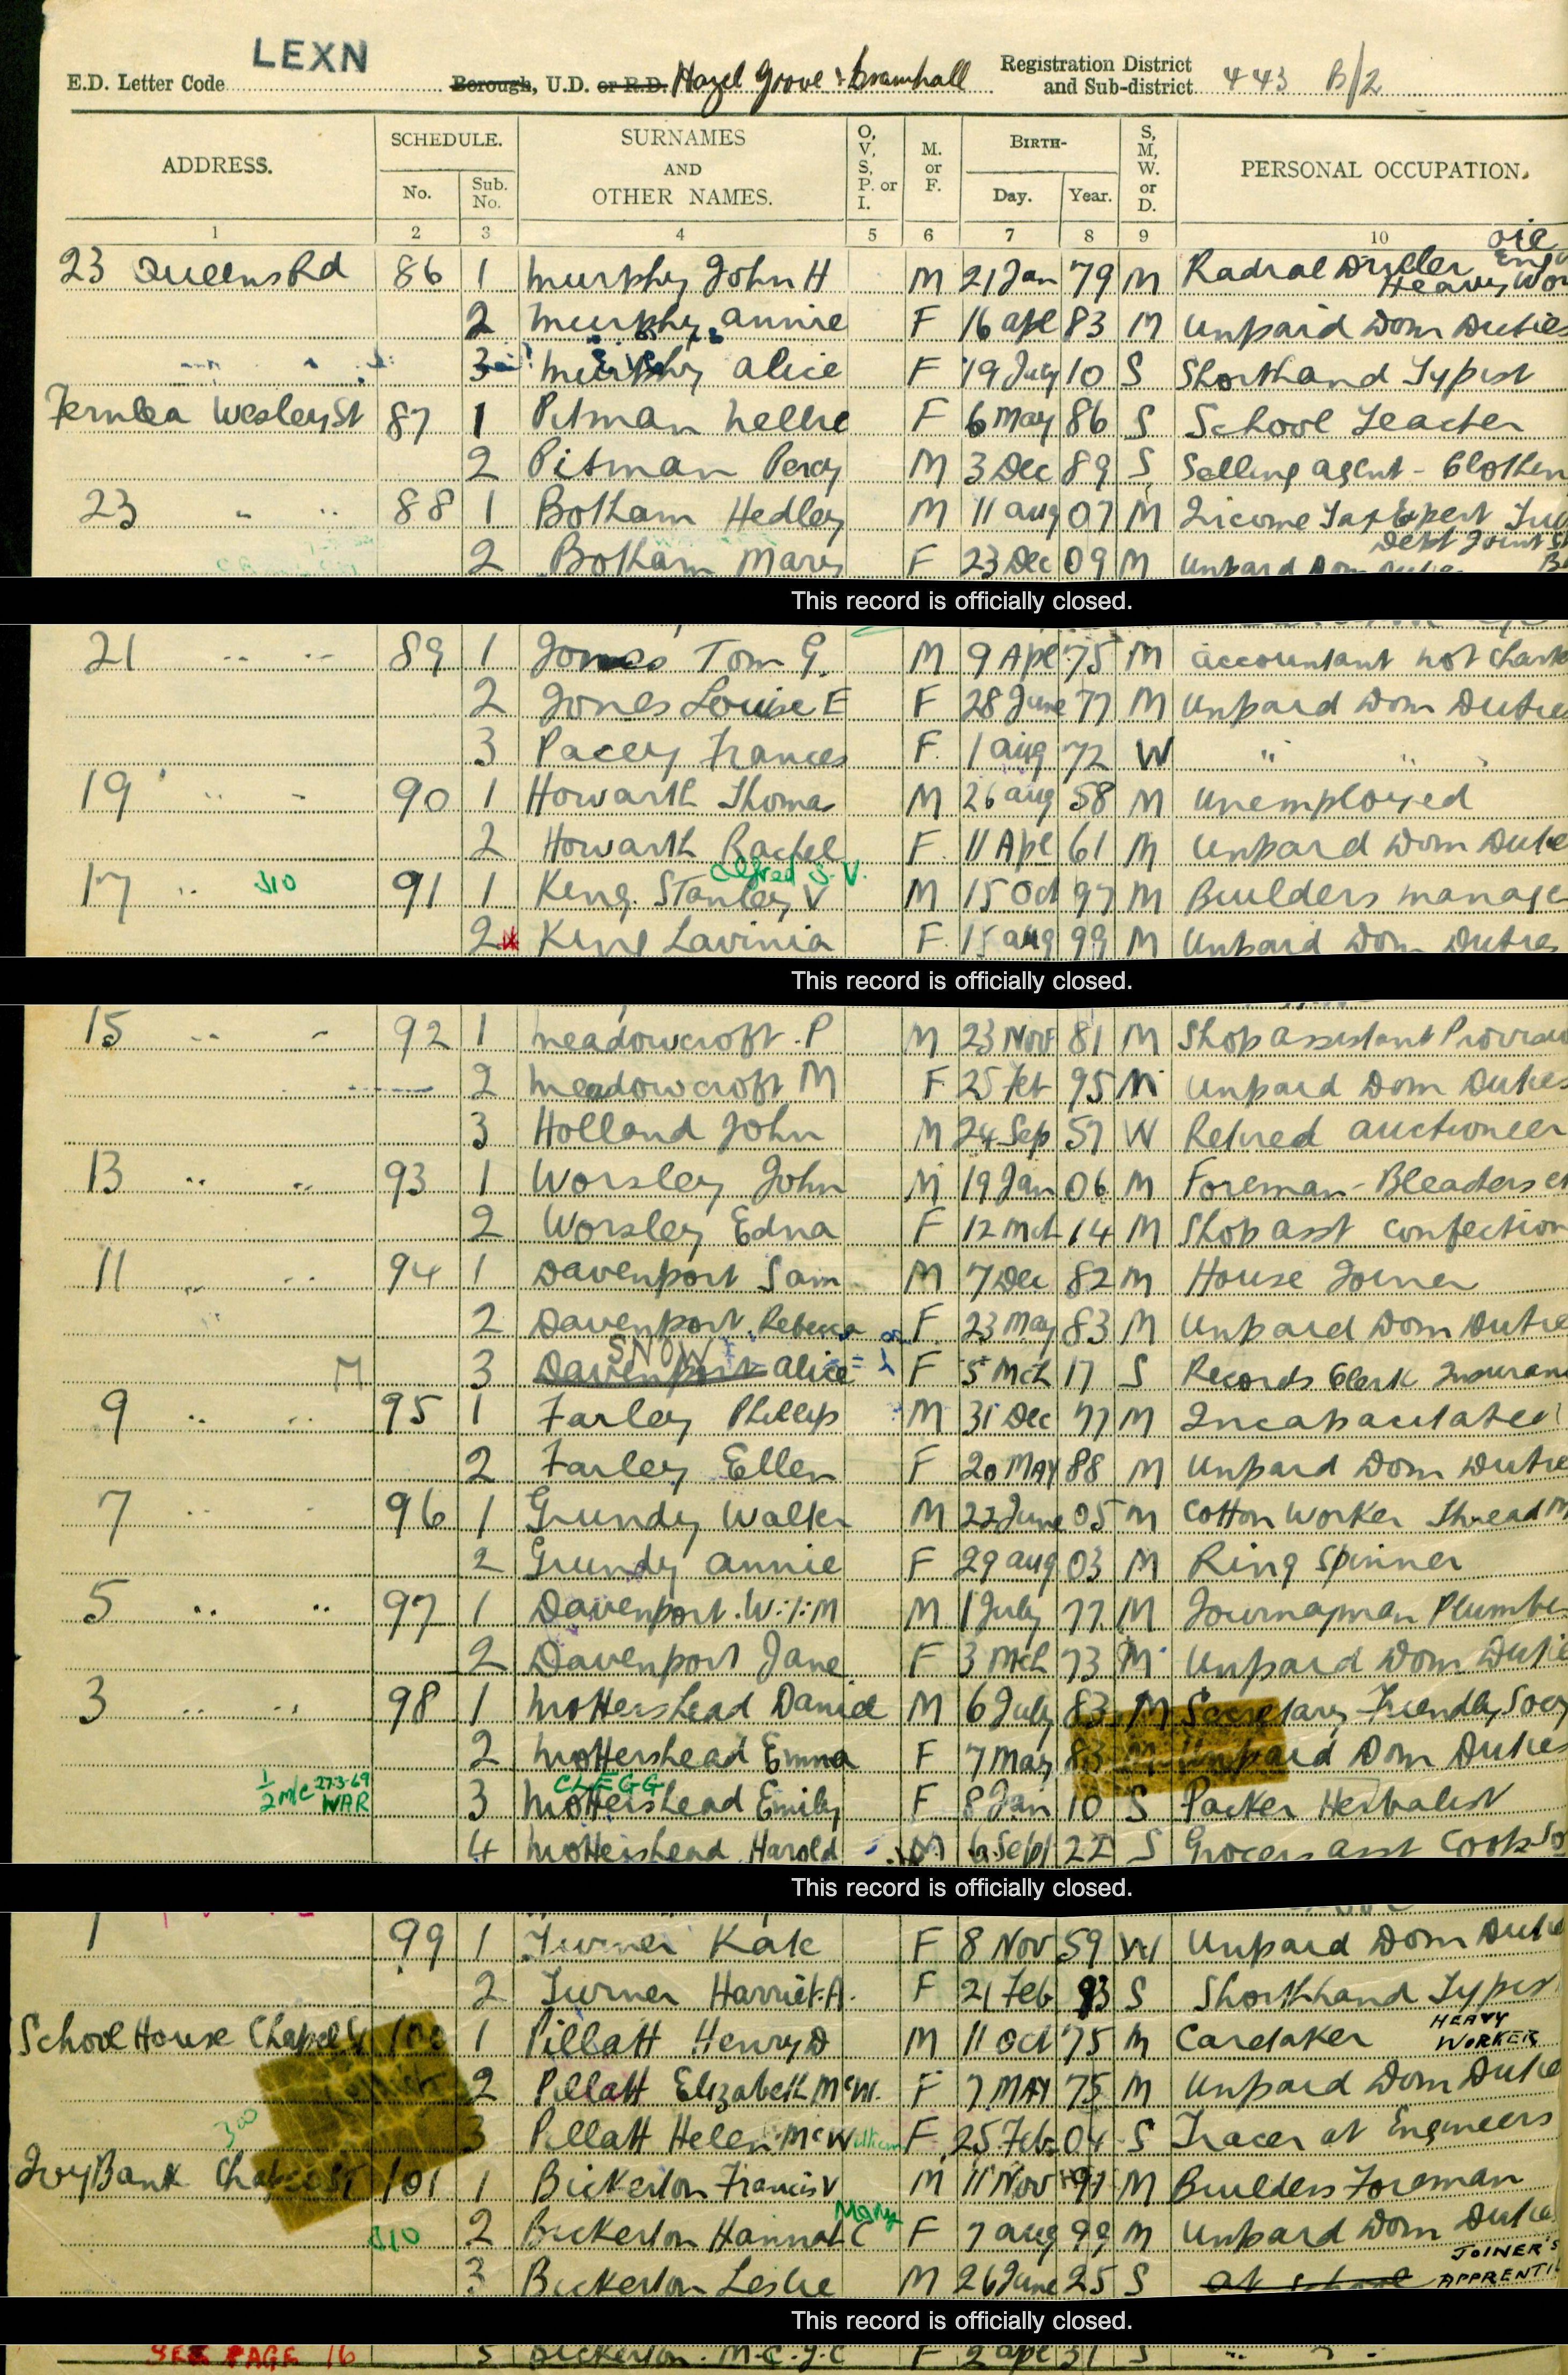 LEXN
E.D. Letter Code Borough, U.D. or R.D. Hazel Grove & Bramhall Registration District and Sub-district 443 B/2
ADDRESS. SCHEDULE. No. Sub. No. SURNAMES AND OTHER NAMES. O, V, S, P. or I. M. or F. BIRTH- Day. Year. S, M, W. or D. PERSONAL OCCUPATION.
1 2 3 4 5 6 7 8 9 10
23 Queens Rd 86 1 Murphy John H M 21 Jan 79 M Radial Driller Oil Heavy
2 Murphy Annie F 16 Apl 83 M Unpaid Dom Duties
3 Murphy Alice F 19 July 10 S Shorthand Typist
Fernlea Wesley St 87 1 Pitman Nellie F 6 May 86 S School Teacher
2 Pitman Percy M 3 Dec 89 S Selling Agent - Clothin
23 " " 88 1 Botham Hedley M 11 Aug 07 M Income Tax Expert
2 Botham Mary F 23 Dec 09 M Unpaid Dom Duties
This record is officially closed.
21 " " 89 1 Jones Tom G. M 9 Apl 75 M Accountant not Chart
2 Jones Louise E F 28 June 77 M Unpaid Dom Duties
3 Pacey Frances F. 1 Aug 72 W " " "
19 " " 90 1 Howarth Thomas M 26 Aug 58 M Unemployed
2 Howarth Rachel F. 11 Apl 61 M Unpaid Dom Dutie
Alfred S. V.
17 " J10 91 1 King. Stanley V M 15 Oct 97 M Builders manage
2 King Lavinia F. 15 Aug 99 M Unpaid Dom Duties
This record is officially closed.
15 " " 92 1 Meadowcroft . P M 23 Nov 81 M Shop Assistant Provisio
2 Meadowcroft M F 25 Feb 95 M Unpaid Dom Duties
3 Holland John M 24 Sep 57 W Retired Auctioneer
13 " " 93 1 Worsley John M 19 Jan 06 M Foreman - Bleachers
2 Worsley Edna F 12 Mch 14 M Shop asst confection
11 " " 94 1 Davenport Sam M 7 Dec 82 M House Joiner
2 Davenport Rebecca F 23 May 83 M Unpaid Dom Dutie
SNOW
M 3 Davenport Alice F 5 Mch 17 S Records Clerk Insuran
9 " " 95 1 Farley Phillip M 31 Dec 77 M Incapacitated
2 Farley Ellen F 20 MAY 88 M Unpaid Dom Dutie
7 " " 96 1 Grundy Walter M 22 June 05 M Cotton Worker Thread M
2 Grundy Annie F 29 Aug 03 M Ring Spinner
5 " " 97 1 Davenport. Wm M 1 July 77 M Journeyman Plumbe
2 Davenport Jane F 3 Mch 73 M Unpaid Dom Dutie
3 " " 98 1 Mottershead Daniel M 6 July 83 M Secretary Friendly Socy
2 Mottershead Emma F 7 May 83 M Unpaid Dom Duties
CLEGG
1/2 M/C 27-3-69 WAR 3 Mottershead Emily F 8 Jan 10 S Packer Herbalist
4 Mottershead Harold M 6 Sept 22 S Grocers asst Coop So
This record is officially closed.
1 99 1 Turner Kate F 8 Nov 59 W Unpaid Dom Dutie
2 Turner Harriet. A. F 21 Feb 93 S Shorthand Typist
School House Chapel St 100 1 Pillatt Henry D M 11 Oct 75 M Caretaker HEAVY WORKER
2 Pillatt Elizabeth McW. F 7 MAY 75 M Unpaid Dom Dutie
300 3 Pillatt Helen McW F 25 Feb 04 S Tracer at Engineers
Ivy Bank Chapel St 101 1 Bickerton Francis V M 11 Nov 97 M Builders Foreman
Mary
J10 2 Bickerton Hannah C F 7 Aug 99 M Unpaid Dom Dutie
3 Bickerton Leslie M 26 June 25 S at school JOINER'S APPRENTI
This record is officially closed.
SEE PAGE 16 5 Bickerton. M. C. J. C F 2 Apl 31 S " " "